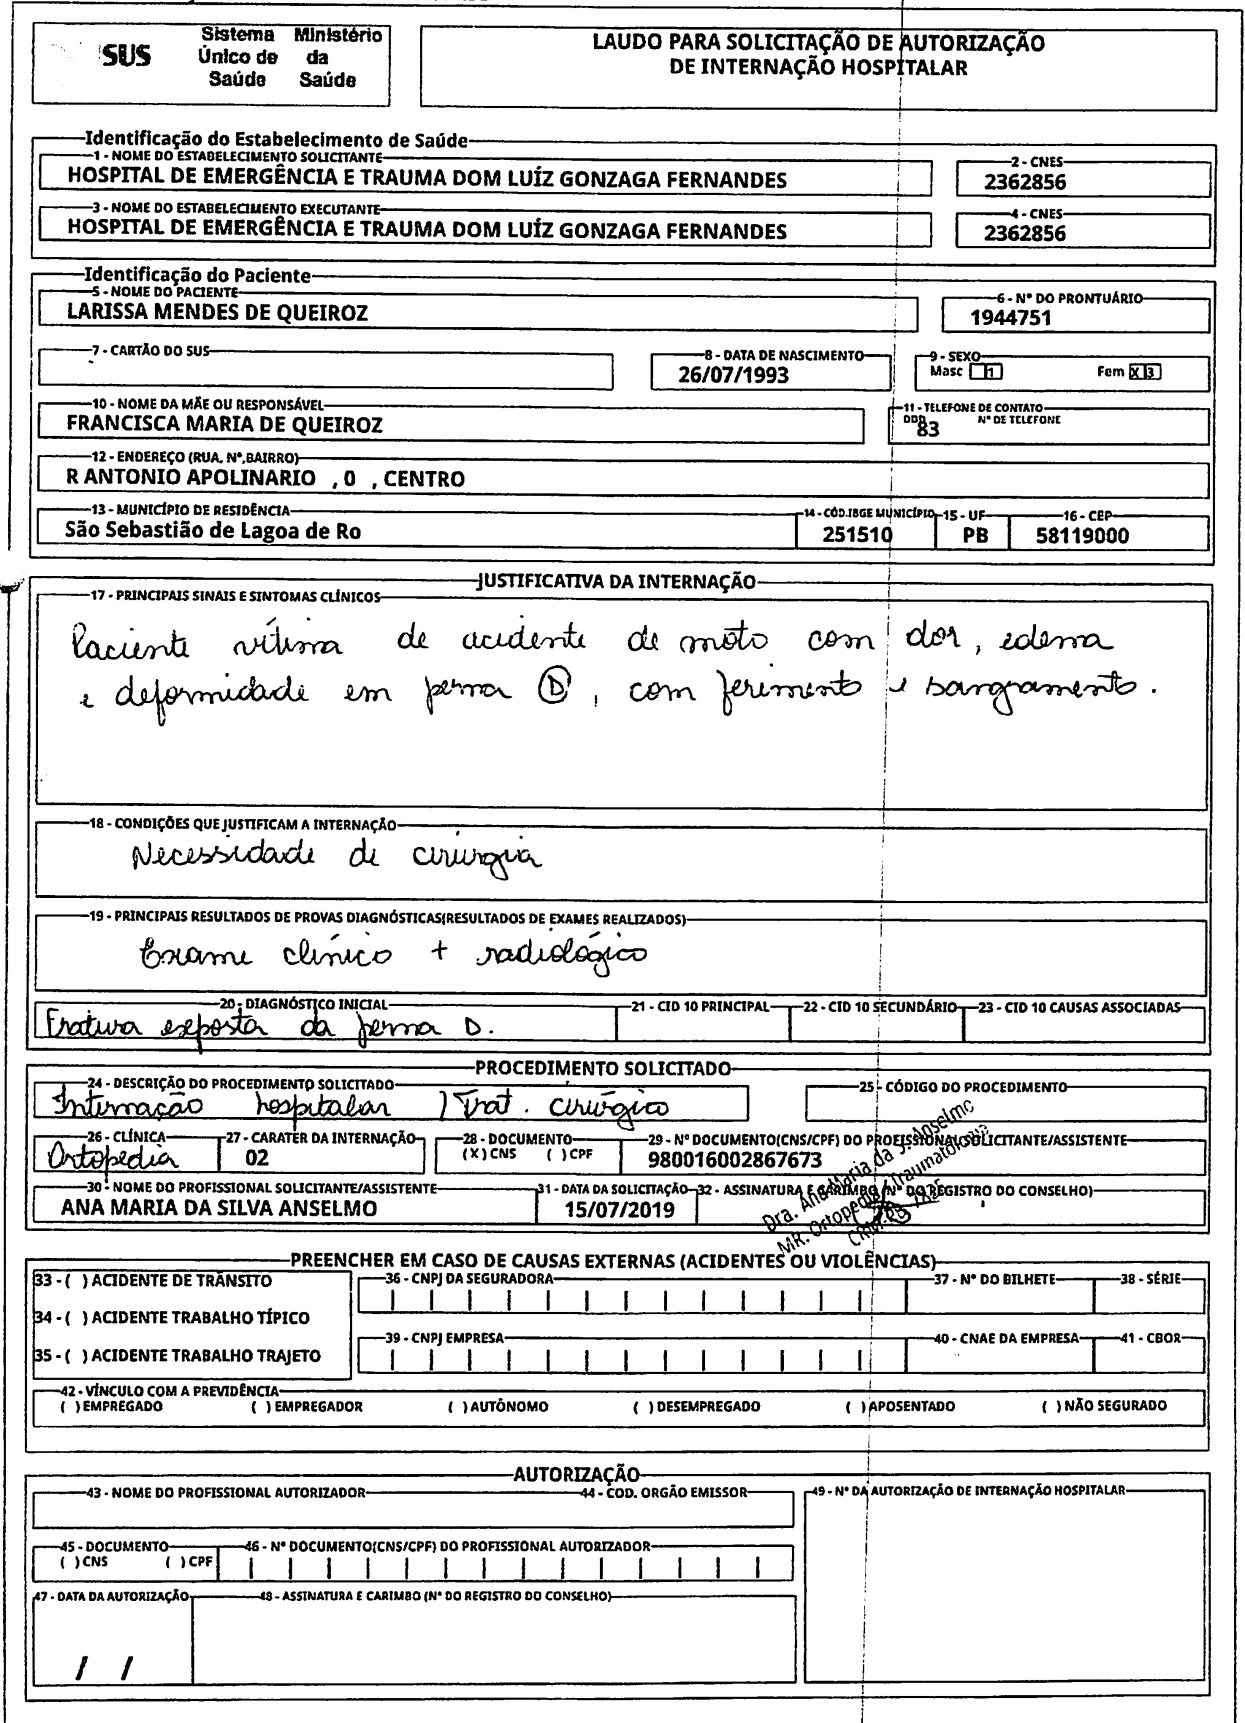 SUS
Sistema Único de Saúde
Ministério da Saúde
LAUDO PARA SOLICITAÇÃO DE AUTORIZAÇÃO
DE INTERNAÇÃO HOSPITALAR
Identificação do Estabelecimento de Saúde
1 - NOME DO ESTABELECIMENTO SOLICITANTE
HOSPITAL DE EMERGÊNCIA E TRAUMA DOM LUÍZ GONZAGA FERNANDES
2 - CNES
2362856
3 - NOME DO ESTABELECIMENTO EXECUTANTE
HOSPITAL DE EMERGÊNCIA E TRAUMA DOM LUÍZ GONZAGA FERNANDES
4 - CNES
2362856
Identificação do Paciente
5 - NOME DO PACIENTE
LARISSA MENDES DE QUEIROZ
6 - Nº DO PRONTUÁRIO
1944751
7 - CARTÃO DO SUS
8 - DATA DE NASCIMENTO
26/07/1993
9 - SEXO
Masc 1 Fem X 3
10 - NOME DA MÃE OU RESPONSÁVEL
FRANCISCA MARIA DE QUEIROZ
11 - TELEFONE DE CONTATO
DDD Nº DE TELEFONE
83
12 - ENDEREÇO (RUA, Nº,BAIRRO)
R ANTONIO APOLINARIO , 0 , CENTRO
13 - MUNICÍPIO DE RESIDÊNCIA
São Sebastião de Lagoa de Ro
14 - CÓD.IBGE MUNICÍPIO
251510
15 - UF
PB
16 - CEP
58119000
JUSTIFICATIVA DA INTERNAÇÃO
17 - PRINCIPAIS SINAIS E SINTOMAS CLÍNICOS
Paciente vítima de acidente de moto com dor, edema
e deformidade em perna (D), com ferimento e sangramento.
18 - CONDIÇÕES QUE JUSTIFICAM A INTERNAÇÃO
Necessidade de cirurgia
19 - PRINCIPAIS RESULTADOS DE PROVAS DIAGNÓSTICAS(RESULTADOS DE EXAMES REALIZADOS)
Exame clínico + radiológico
20 - DIAGNÓSTICO INICIAL
Fratura exposta da perna D.
21 - CID 10 PRINCIPAL
22 - CID 10 SECUNDÁRIO
23 - CID 10 CAUSAS ASSOCIADAS
PROCEDIMENTO SOLICITADO
24 - DESCRIÇÃO DO PROCEDIMENTO SOLICITADO
Internação hospitalar / Trat. cirúrgico
25 - CÓDIGO DO PROCEDIMENTO
26 - CLÍNICA
Ortopedia
27 - CARATER DA INTERNAÇÃO
02
28 - DOCUMENTO
(X) CNS ( ) CPF
29 - Nº DOCUMENTO(CNS/CPF) DO PROFISSIONAL SOLICITANTE/ASSISTENTE
980016002867673
30 - NOME DO PROFISSIONAL SOLICITANTE/ASSISTENTE
ANA MARIA DA SILVA ANSELMO
31 - DATA DA SOLICITAÇÃO
15/07/2019
32 - ASSINATURA E CARIMBO (Nº DO REGISTRO DO CONSELHO)
Dra. Ana Maria da S. Anselmo
MR. Ortopedia / Traumatologia
CRM-PB
PREENCHER EM CASO DE CAUSAS EXTERNAS (ACIDENTES OU VIOLÊNCIAS)
33 - ( ) ACIDENTE DE TRÂNSITO
34 - ( ) ACIDENTE TRABALHO TÍPICO
35 - ( ) ACIDENTE TRABALHO TRAJETO
36 - CNPJ DA SEGURADORA
37 - Nº DO BILHETE
38 - SÉRIE
39 - CNPJ EMPRESA
40 - CNAE DA EMPRESA
41 - CBOR
42 - VÍNCULO COM A PREVIDÊNCIA
( ) EMPREGADO ( ) EMPREGADOR ( ) AUTÔNOMO ( ) DESEMPREGADO ( ) APOSENTADO ( ) NÃO SEGURADO
AUTORIZAÇÃO
43 - NOME DO PROFISSIONAL AUTORIZADOR
44 - COD. ORGÃO EMISSOR
49 - Nº DA AUTORIZAÇÃO DE INTERNAÇÃO HOSPITALAR
45 - DOCUMENTO
( ) CNS ( ) CPF
46 - Nº DOCUMENTO(CNS/CPF) DO PROFISSIONAL AUTORIZADOR
47 - DATA DA AUTORIZAÇÃO
/ /
48 - ASSINATURA E CARIMBO (Nº DO REGISTRO DO CONSELHO)